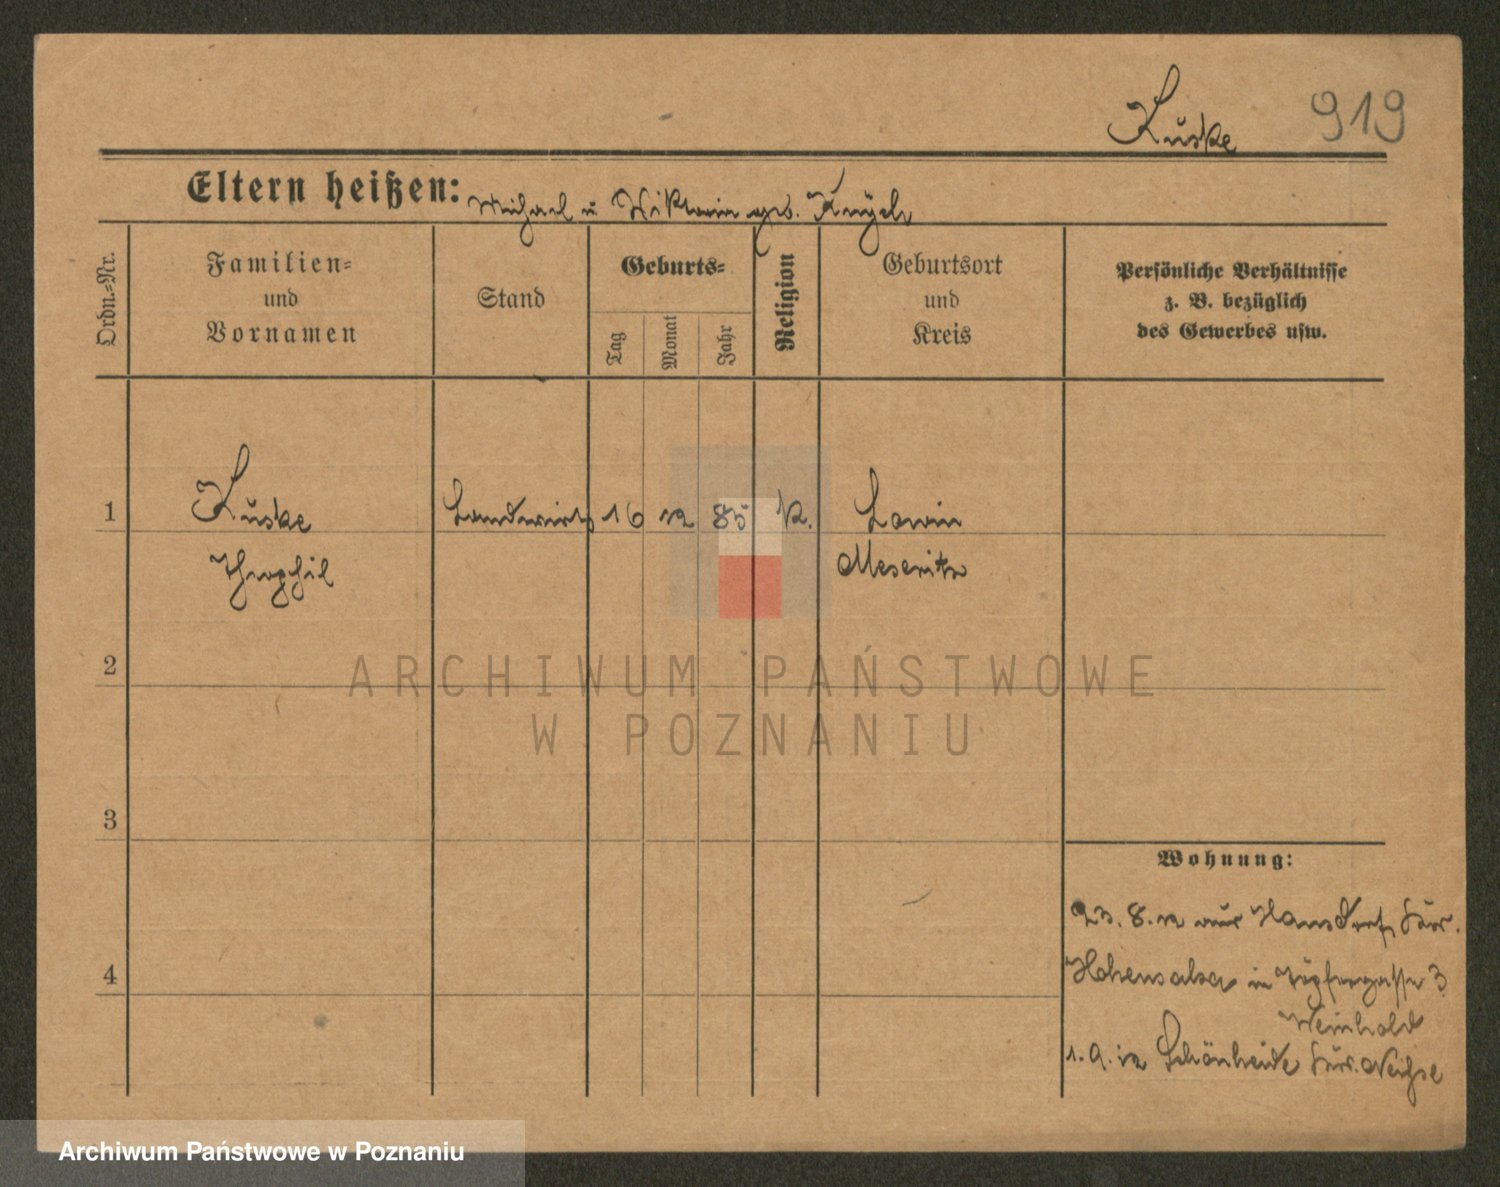 Kuske 919
Eltern heißen: Michael u Wiktoria geb.
Ordn.-Nr.
Familien-
und
Vornamen
Stand
Geburts-
Tag
Monat
Jahr
Religion
Geburtsort
und
Kreis
Persönliche Verhältnisse
z. B. bezüglich
des Gewerbes usw.
1 Kuske Landwirt 16 12 85 K. Lowin
Theophil Meseritz
2
ARCHIWUM PAŃSTWOWE
W POZNANIU
3
Wohnung:
23. 8. 12 aus Hansdorf,
4
Hohensalza in Töpfergasse 3
Weinhold
1. 9. 12 Schönheide Neiße
Archiwum Państwowe w Poznaniu